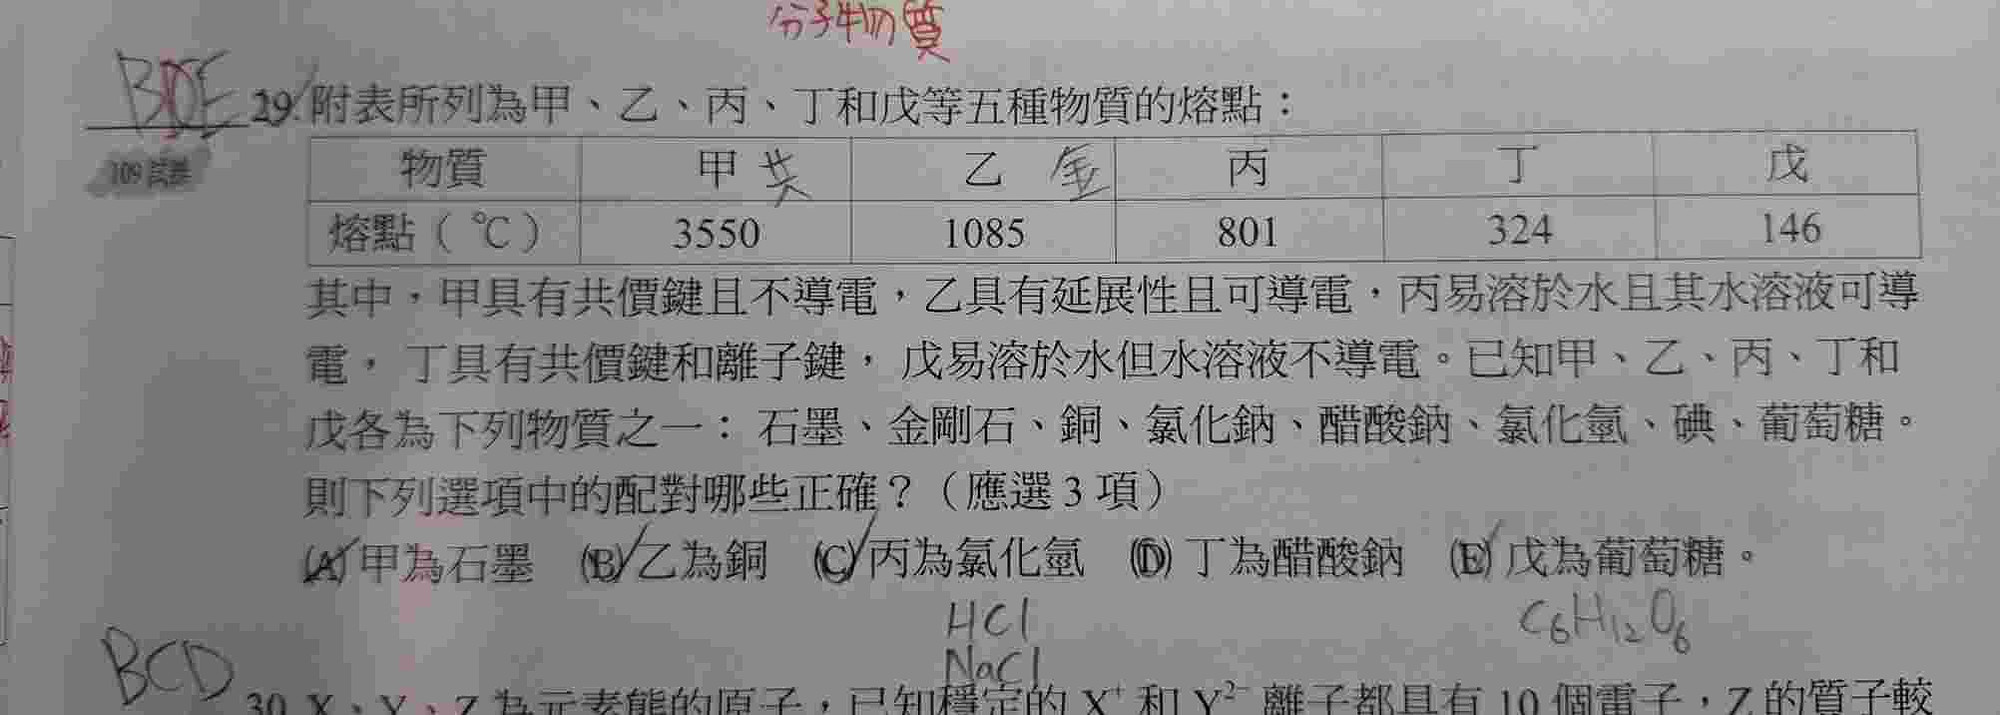 分子物質
BDE 29. 附表所列為甲、乙、丙、丁和戊等五種物質的熔點：
109試辦
物質 甲 共 乙 金 丙 丁 戊
熔點（℃） 3550 1085 801 324 146
其中，甲具有共價鍵且不導電，乙具有延展性且可導電，丙易溶於水且其水溶液可導
電，丁具有共價鍵和離子鍵，戊易溶於水但水溶液不導電。已知甲、乙、丙、丁和
戊各為下列物質之一：石墨、金剛石、銅、氯化鈉、醋酸鈉、氯化氫、碘、葡萄糖。
則下列選項中的配對哪些正確？（應選 3 項）
(A) 甲為石墨 (B) 乙為銅 (C) 丙為氯化氫 (D) 丁為醋酸鈉 (E) 戊為葡萄糖。
HCl C6H12O6
NaCl
BCD 30. X、Y、Z 為元素態的原子，已知穩定的 X⁺ 和 Y²⁻ 離子都具有 10 個電子，Z 的質子較